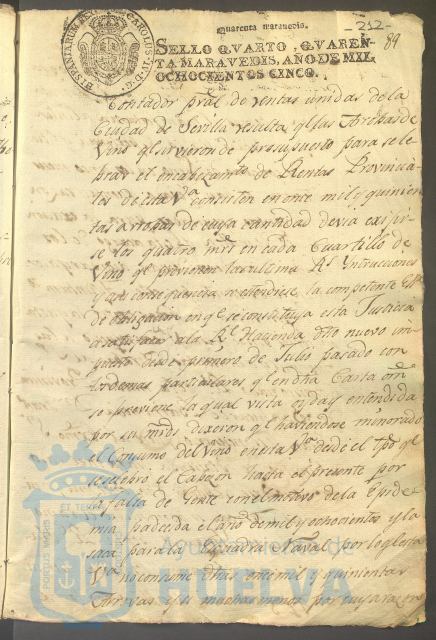 Quarenta maravedis.
232
89
HISPANIARUM REX CAROLUS IV D. G.
SELLO QVARTO, QVAREN-
TA MARAVEDIS, AÑO DE MIL
OCHOCIENTOS CINCO.
Contador pral de rentas unidas de la
Ciudad de Sevilla resulta q.e las Arrobas de
Vino q.e sirvieron de presupuesto para cele
brar el encabezam.to de Rentas Provincia
les de esta V.a consisten en once mil y quinien
tas arrobas de cuya cantidad devia exijir
se los quatro mrs en cada Cuartillo de
Vino q.e previenen las ultimas R.s Ynstrucciones
y en consequencia se la competente
de obligacion en q.e se constituya esta Justicia
a la R.l Hazienda dho nuevo im
puesto desde primero de Julio pasado con
lo demas particulares q.e en dha Carta orn
se previene la qual vista oyda y entendida
por su mrds dixeron q.e haviendose minorado
el Consumo del Vino en esta V.a desde el tpo q.e
se celebro el Cabezon hasta el presente por
la falta de Gente con el motivo de la Epide
mia padecida el año de mil y ochocientos y la
saca para la Esquadra Naval por lo q.e esta
V.a no consume dhas once mil y quinientas
Arrovas y si muchas menos por cuya razon
ET TERRAE
PORTUS MARIS
Ayuntamiento de
HUELVA